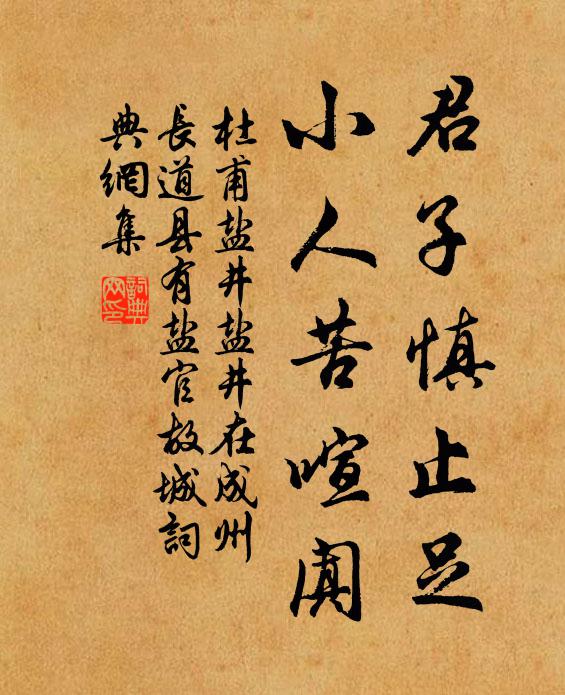 君子慎止足
小人苦喧阗
杜甫盐井盐井在成州
长道县有盐官故城词
典网集
词典网印